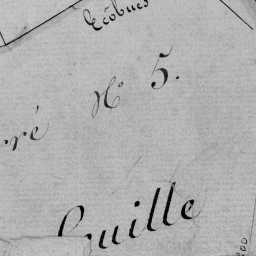 Ecobues
ré N° 5.
Guille